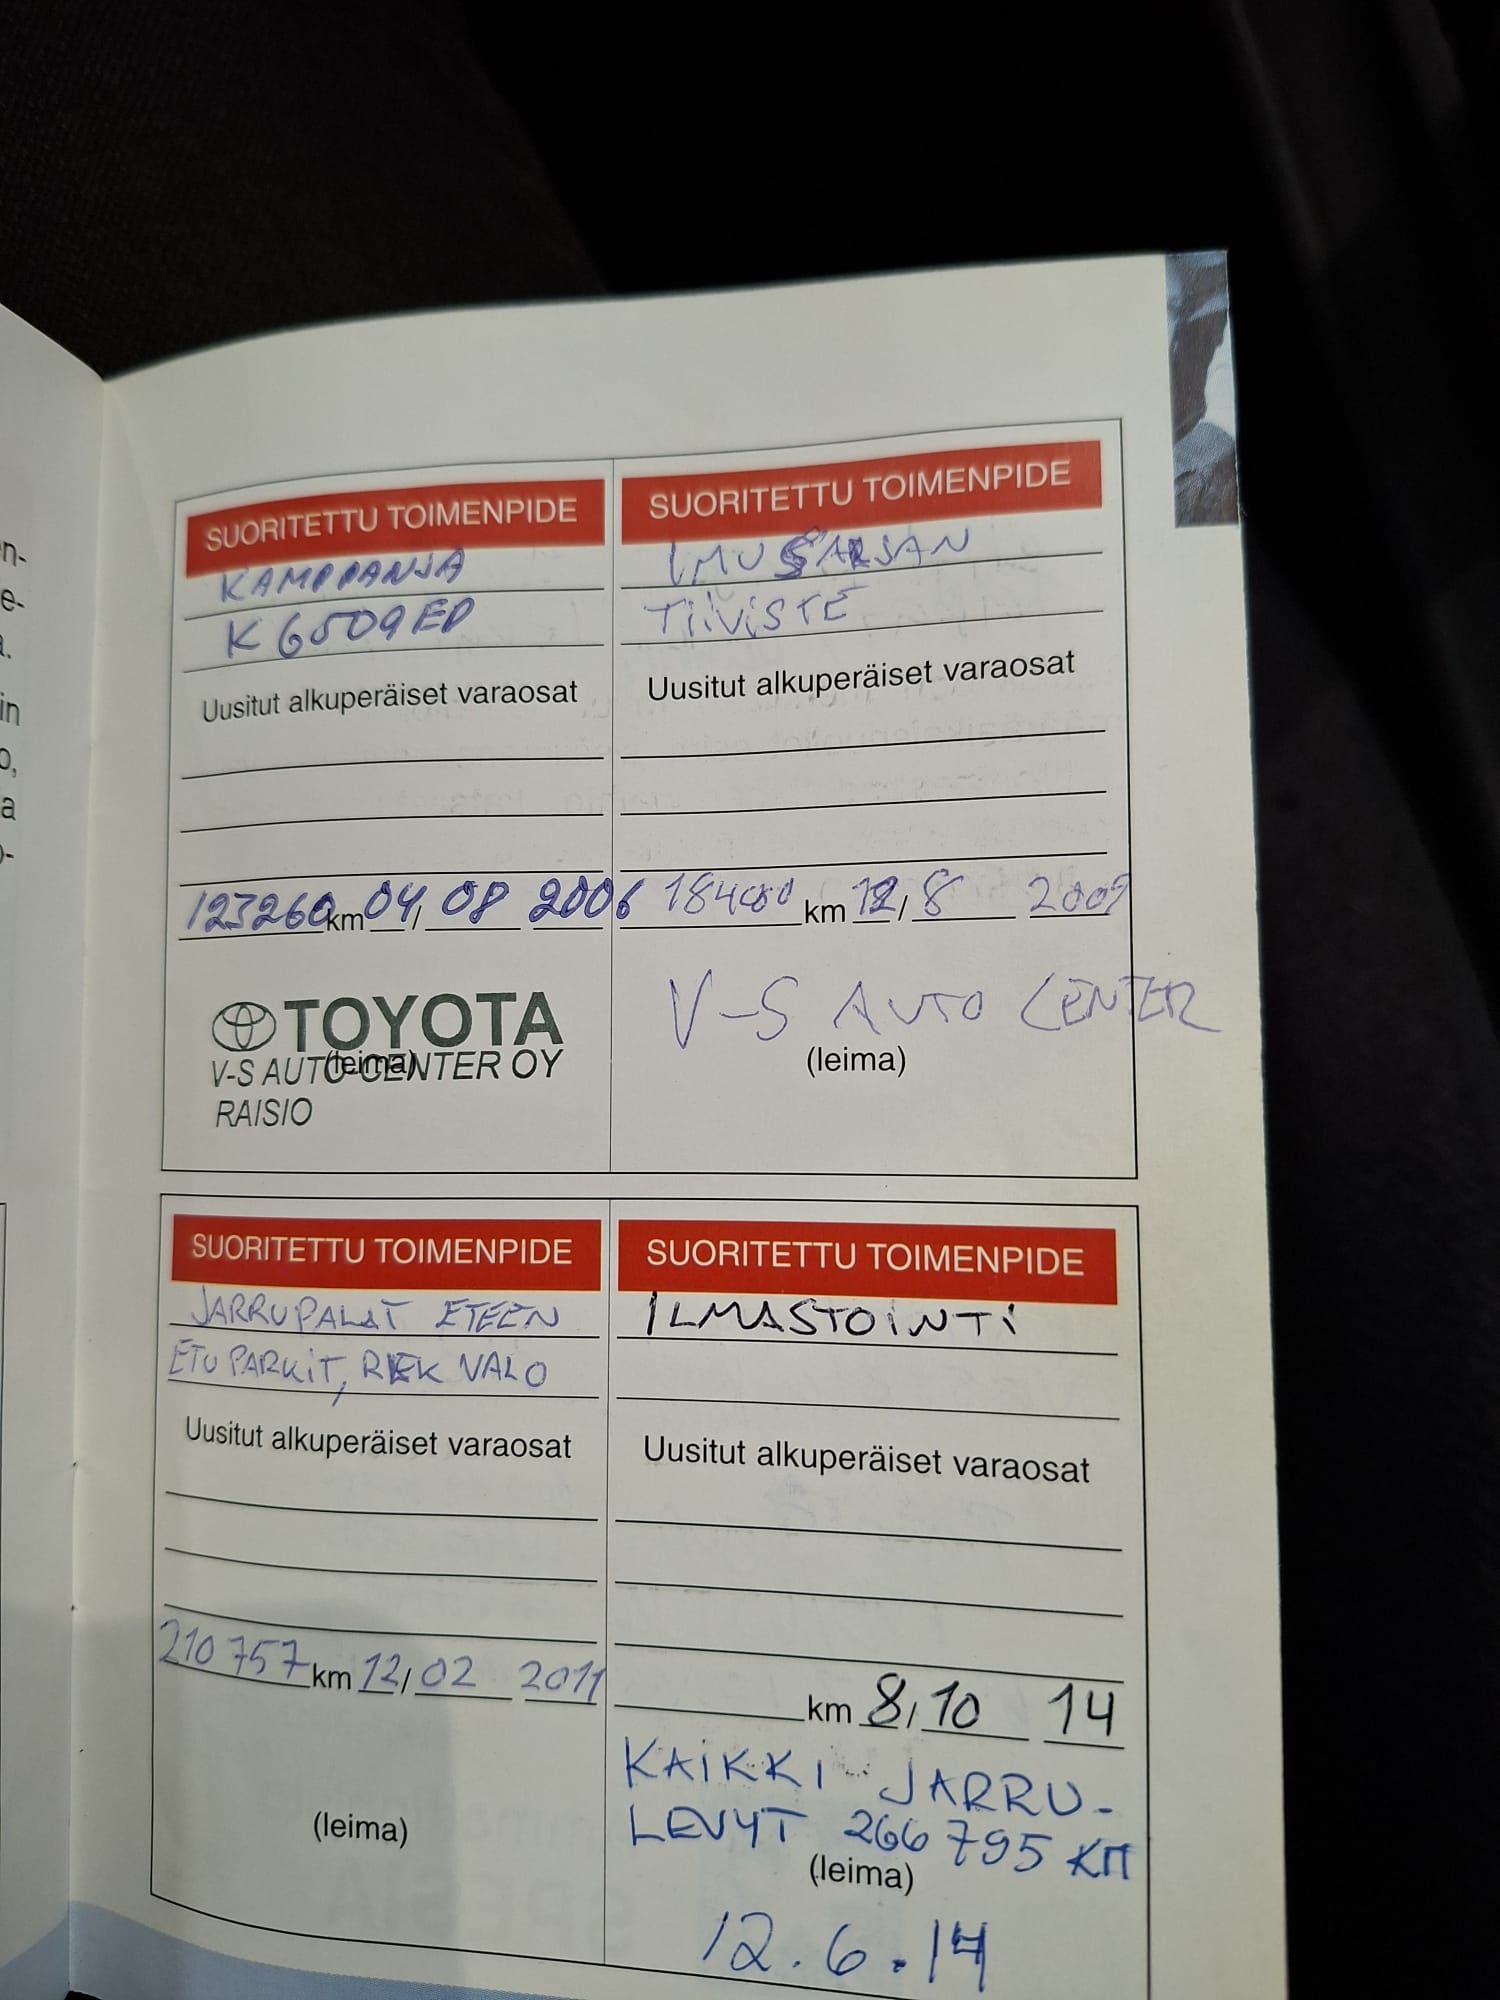 n-
e-
a.
in
o,
a
o-
SUORITETTU TOIMENPIDE
KAMPPANJA
K6509ED
Uusitut alkuperäiset varaosat
123260 km 04 / 08 2006
TOYOTA
(leima)
V-S AUTO-CENTER OY
RAISIO
SUORITETTU TOIMENPIDE
IMUSARJAN
TiiViSTE
Uusitut alkuperäiset varaosat
km 12 / 8 2009
V-S AUTO CENTER
(leima)
SUORITETTU TOIMENPIDE
JARRUPALAT ETEEN
ETU PARKiT, REK VALO
Uusitut alkuperäiset varaosat
210 757 km 12 / 02 2011
(leima)
SUORITETTU TOIMENPIDE
ILMASTOiNTi
Uusitut alkuperäiset varaosat
km 8 / 10 14
KAiKKi JARRU-
LEVYT 266 795 KM
(leima)
12.6.14